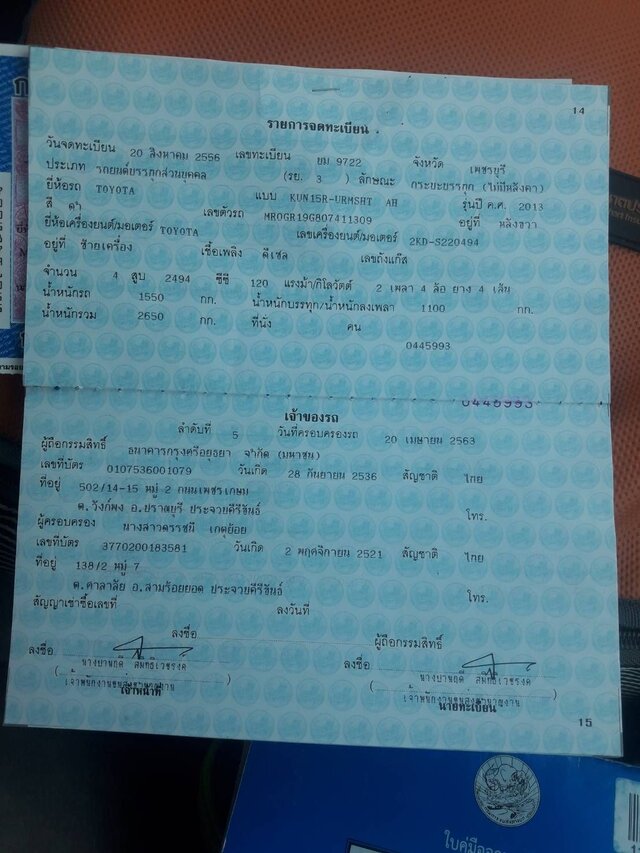 14
รายการจดทะเบียน
วันจดทะเบียน 20 สิงหาคม 2556 เลขทะเบียน ยม 9722 จังหวัด เพชรบุรี
ประเภท รถยนต์บรรทุกส่วนบุคคล (รย. 3 ) ลักษณะ กระบะบรรทุก (ไม่มีหลังคา)
ยี่ห้อรถ TOYOTA แบบ KUN15R-URMSHT AH รุ่นปี ค.ศ. 2013
สี ดำ เลขตัวรถ MR0GR19G807411309 อยู่ที่ หลังขวา
ยี่ห้อเครื่องยนต์/มอเตอร์ TOYOTA เลขเครื่องยนต์/มอเตอร์ 2KD-S220494
อยู่ที่ ซ้ายเครื่อง เชื้อเพลิง ดีเซล เลขถังแก๊ส
จำนวน 4 สูบ 2494 ซีซี 120 แรงม้า/กิโลวัตต์ 2 เพลา 4 ล้อ ยาง 4 เส้น
น้ำหนักรถ 1550 กก. น้ำหนักบรรทุก/น้ำหนักลงเพลา 1100 กก.
น้ำหนักรวม 2650 กก. ที่นั่ง คน
0445993
0445993
เจ้าของรถ
ลำดับที่ 5 วันที่ครอบครองรถ 20 เมษายน 2563
ผู้ถือกรรมสิทธิ์ ธนาคารกรุงศรีอยุธยา จำกัด (มหาชน)
เลขที่บัตร 0107536001079 วันเกิด 28 กันยายน 2536 สัญชาติ ไทย
ที่อยู่ 502/14-15 หมู่ 2 ถนนเพชรเกษม
ต.วังก์พง อ.ปราณบุรี ประจวบคีรีขันธ์ โทร.
ผู้ครอบครอง นางสาวดรรชนี เกตุย้อย
เลขที่บัตร 3770200183581 วันเกิด 2 พฤศจิกายน 2521 สัญชาติ ไทย
ที่อยู่ 138/2 หมู่ 7
ต.ศาลาลัย อ.สามร้อยยอด ประจวบคีรีขันธ์ โทร.
สัญญาเช่าซื้อเลขที่ ลงวันที่
ลงชื่อ ผู้ถือกรรมสิทธิ์
ลงชื่อ ลงชื่อ
เจ้าหน้าที่ นายทะเบียน
15